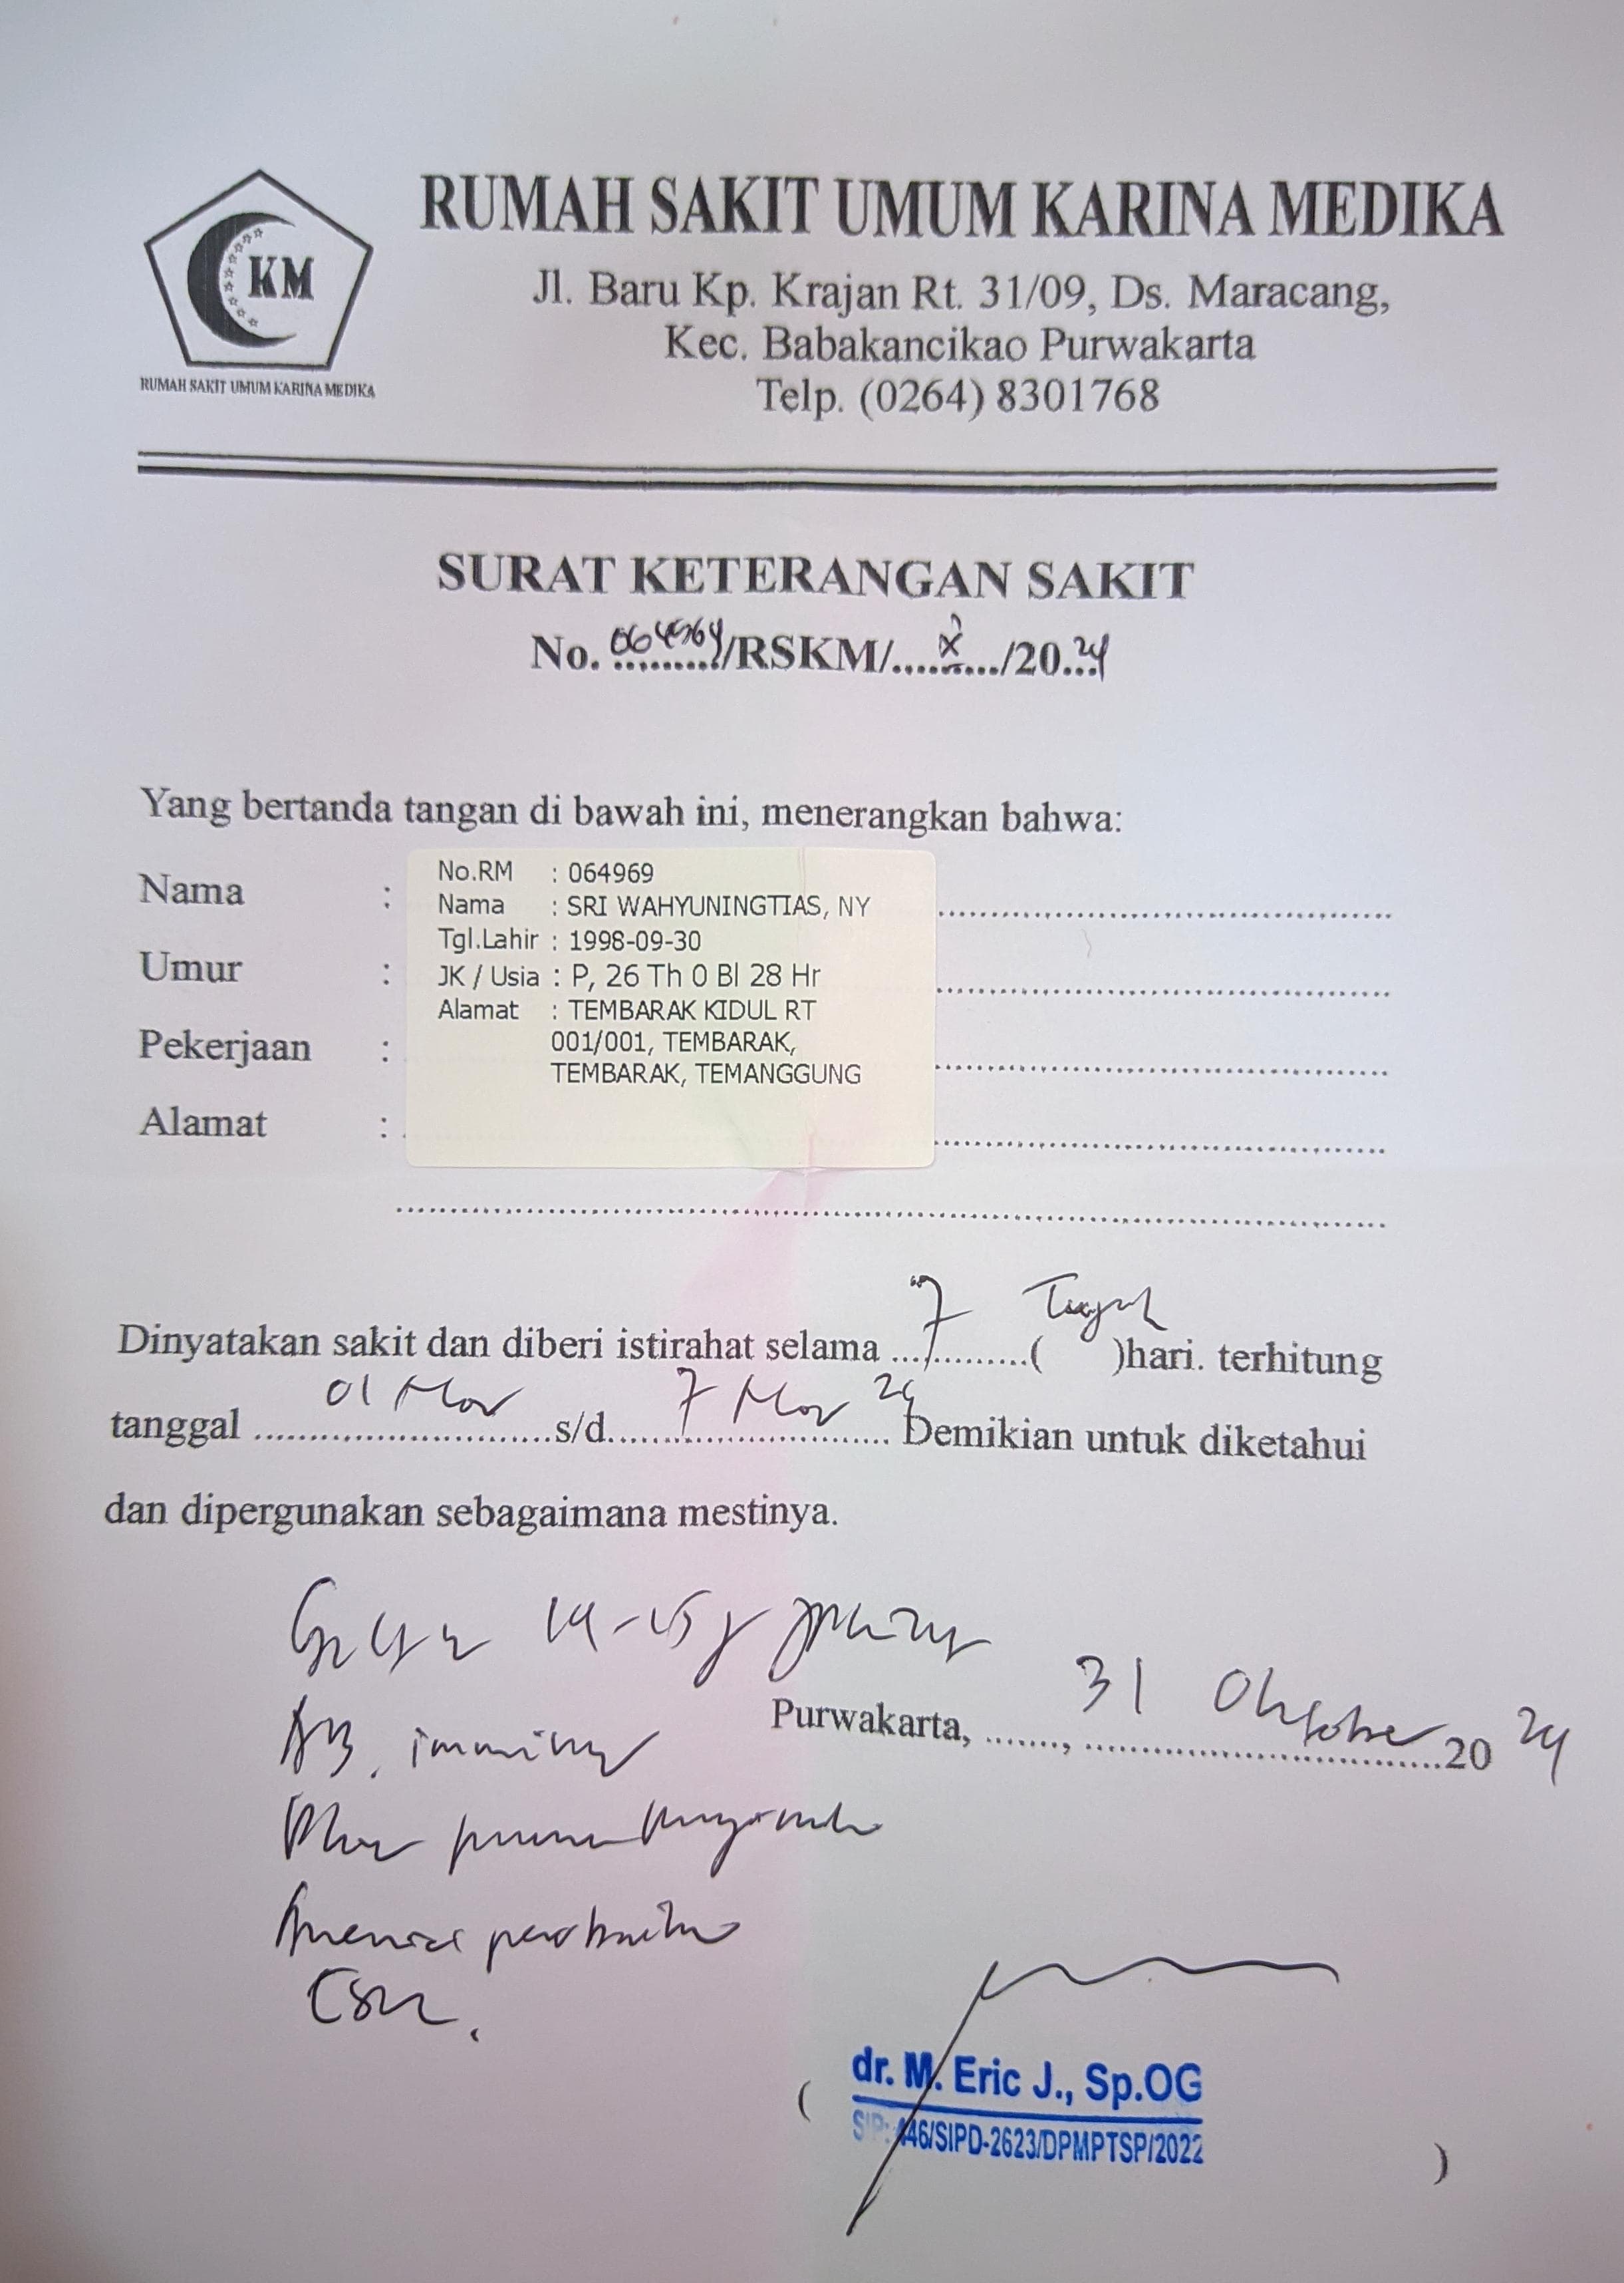 RUMAH SAKIT UMUM KARINA MEDIKA
Jl. Baru Kp. Krajan Rt. 31/09, Ds. Maracang,
Kec. Babakancikao Purwakarta
Telp. (0264) 8301768
KM
RUMAH SAKIT UMUM KARINA MEDIKA
SURAT KETERANGAN SAKIT
No. 064969/RSKM/....X.../20.24
Yang bertanda tangan di bawah ini, menerangkan bahwa:
Nama :
Umur :
Pekerjaan :
Alamat :
No.RM : 064969
Nama : SRI WAHYUNINGTIAS, NY
Tgl.Lahir : 1998-09-30
JK / Usia : P, 26 Th 0 Bl 28 Hr
Alamat : TEMBARAK KIDUL RT
001/001, TEMBARAK,
TEMBARAK, TEMANGGUNG
Dinyatakan sakit dan diberi istirahat selama 7 (Tujuh)hari. terhitung
tanggal 01 Nov s/d 7 Nov 24 Demikian untuk diketahui
dan dipergunakan sebagaimana mestinya.
14-15
Purwakarta, 31 Oktober 2024
dr. M. Eric J., Sp.OG
SIP: 446/SIPD-2623/DPMPTSP/2022